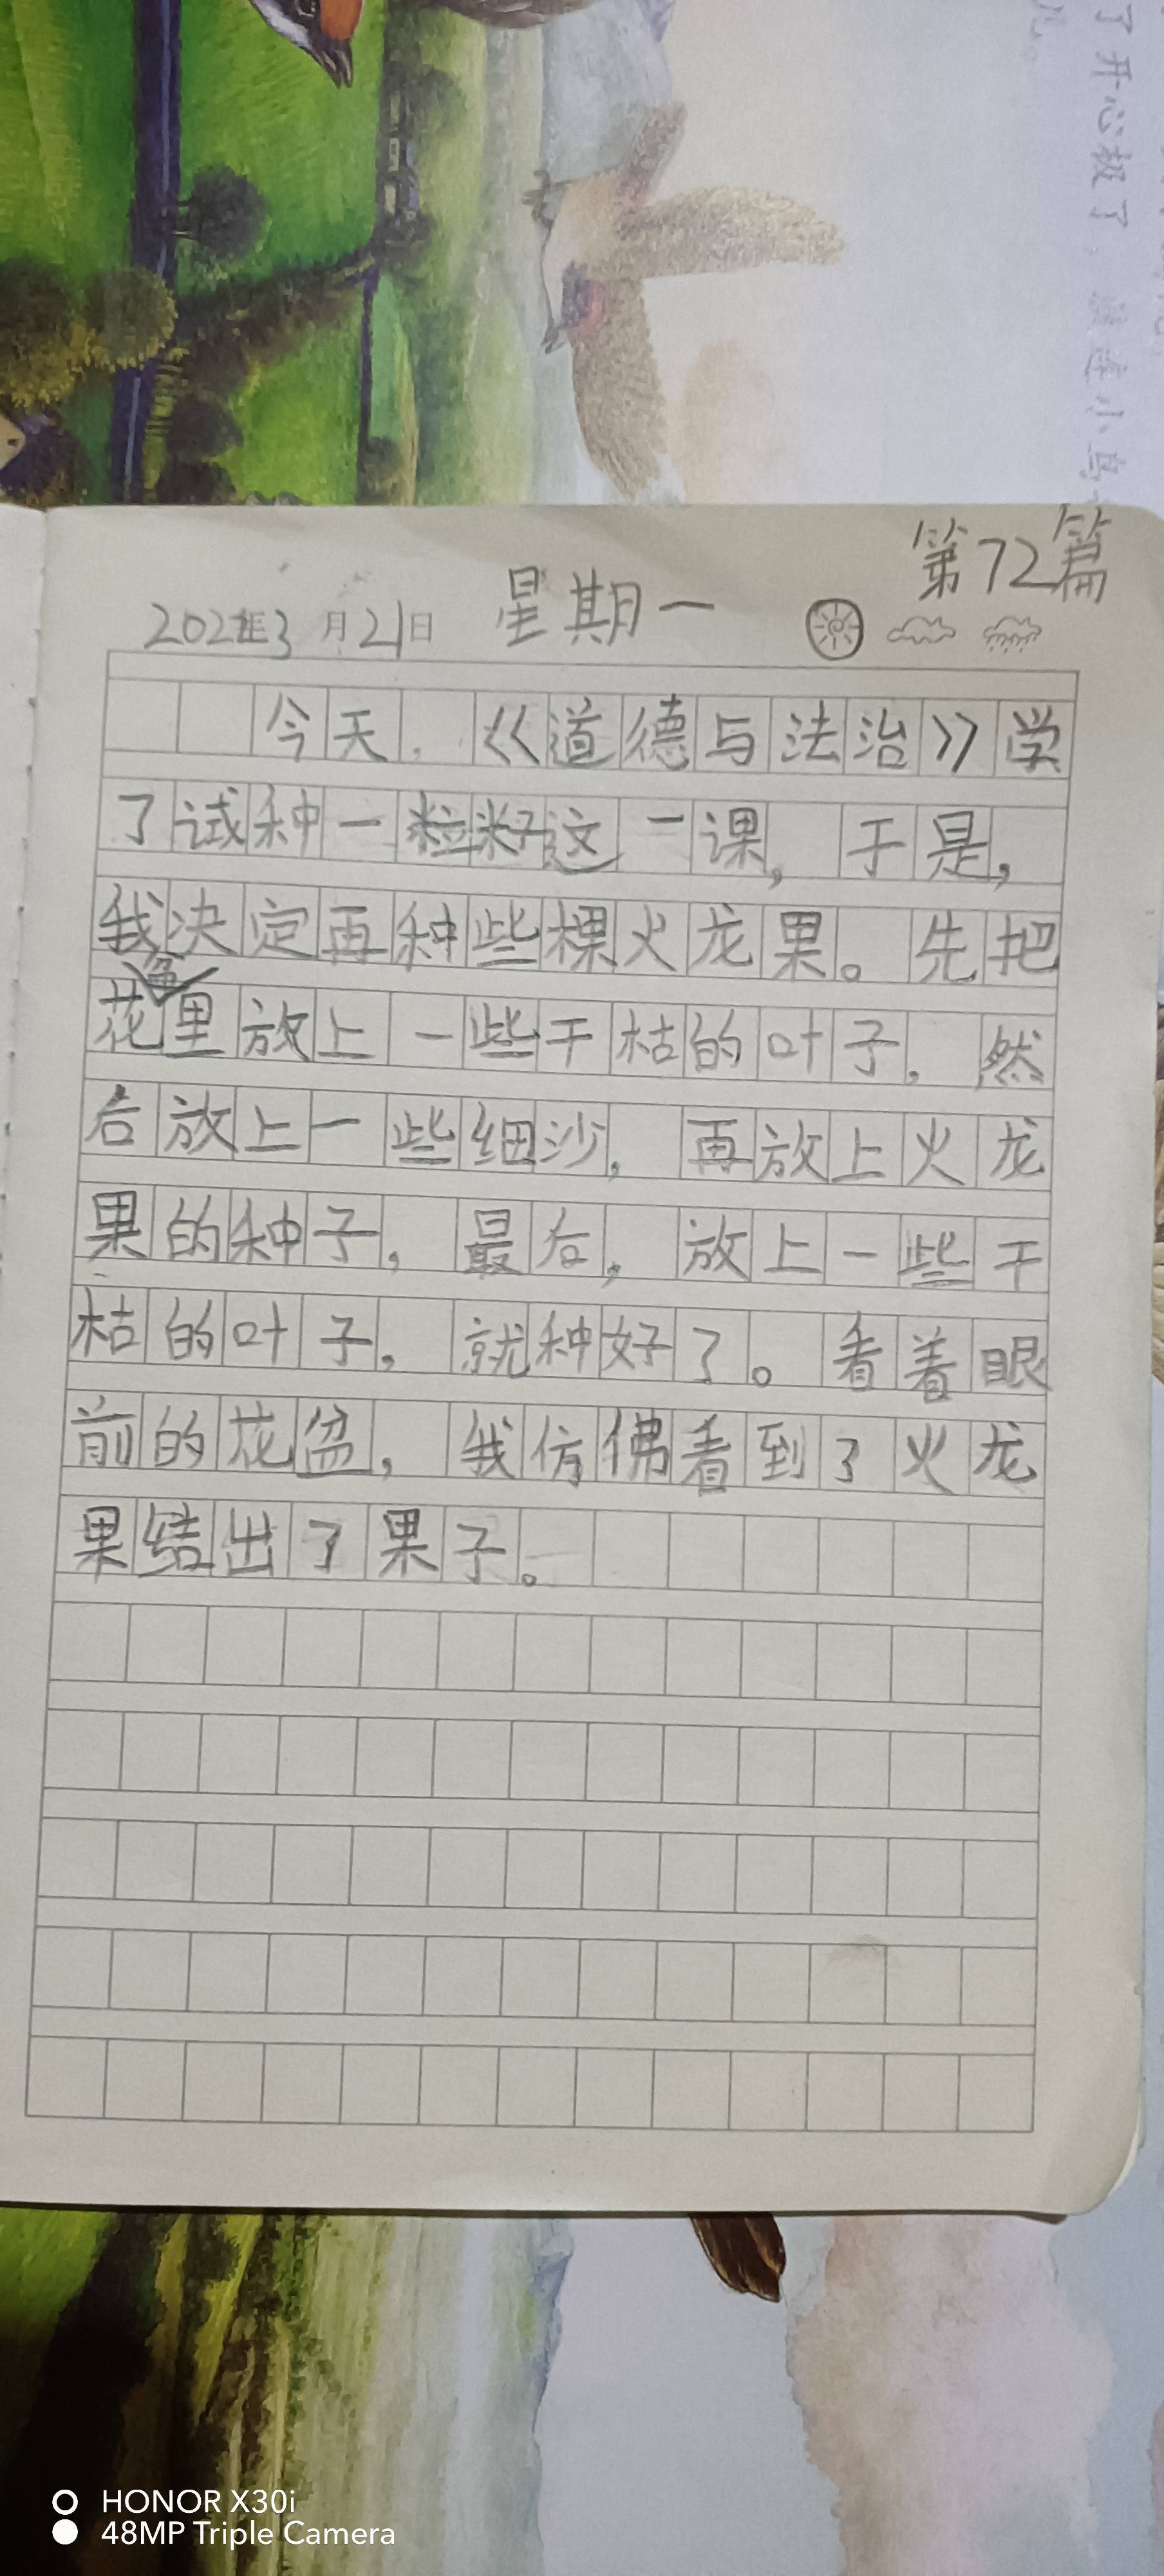 了开心极了
小鸟
儿
第72篇
2022年3月21日 星期一
今天,《道德与法治》学
了试种一粒籽这一课,于是,
我决定再种些棵火龙果。先把
花盆里放上一些干枯的叶子,然
后放上一些细沙,再放上火龙
果的种子,最后,放上一些干
枯的叶子,就种好了。看着眼
前的花盆,我仿佛看到了火龙
果结出了果子。
HONOR X30i
48MP Triple Camera